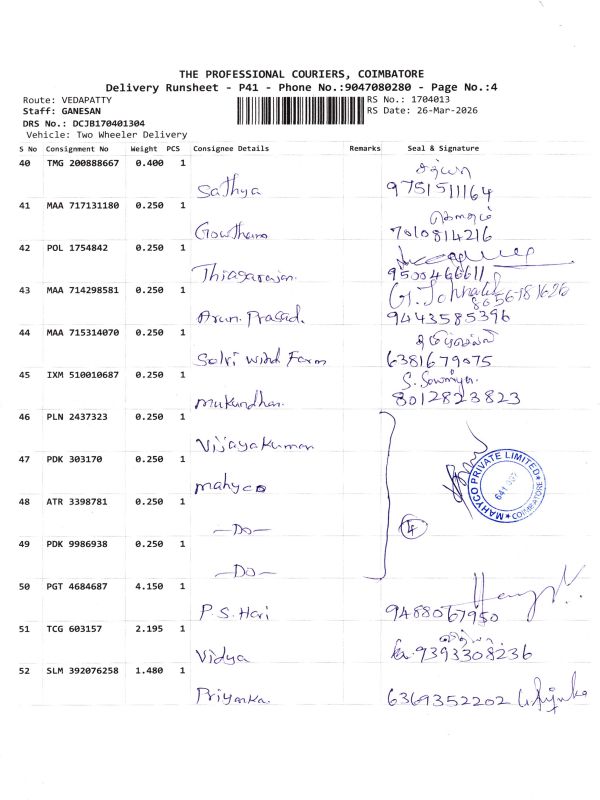 THE PROFESSIONAL COURIERS, COIMBATORE
Delivery Runsheet - P41 - Phone No.:9047080280 - Page No.:4
Route: VEDAPATTY
RS No.: 1704013
Staff: GANESAN
RS Date: 26-Mar-2026
DRS No.: DCJB170401304
Vehicle: Two Wheeler Delivery
S No Consignment No Weight PCS Consignee Details Remarks Seal & Signature
40 TMG 200888667 0.400 1
Sathya 9751511164
41 MAA 717131180 0.250 1
Gowtham 7010814216
42 POL 1754842 0.250 1
Thiagarajan. 9500466611
43 MAA 714298581 0.250 1
Arun. Prasad. 9443585396
44 MAA 715314070 0.250 1
Selvi Wind Farm 6381679075
45 IXM 510010687 0.250 1 S. Sowmiya.
Mukundhan. 8012823823
46 PLN 2437323 0.250 1
Vijayakumar
47 PDK 303170 0.250 1
Mahyco
MAHYCO PRIVATE LIMITED
COIMBATORE
48 ATR 3398781 0.250 1
—Do— 4
49 PDK 9986938 0.250 1
—Do—
50 PGT 4684687 4.150 1
P.S. Hari 9488067950
51 TCG 603157 2.195 1
Vidya 9393308236
52 SLM 392076258 1.480 1
Priyanka. 6369352202